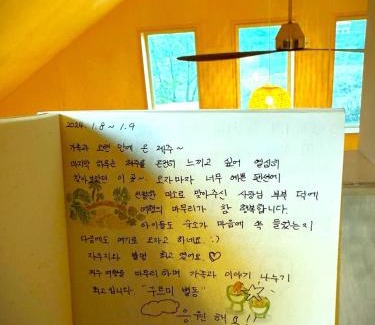 2024. 1.8 ~ 1.9
가족과 오랜 만에 온 제주~
마지막 하루는 제주를 온전히 느끼고 싶어 열심히
찾아보았던 이 곳~. 오자마자 너무 예쁜 펜션에
친절한 미소로 맞아주신 사장님 부부 덕에
여행의 마무리가 참 행복합니다.
아이들도 숙소가 마음에 쏙 들었는지
다음에도 여기로 오자고 하네요. :)
자쿠지와 불멍 최고였어요. ♡
제주 여행을 마무리하며 가족과 이야기 나누기
최고입니다. "구르미 별동"
응원해요!